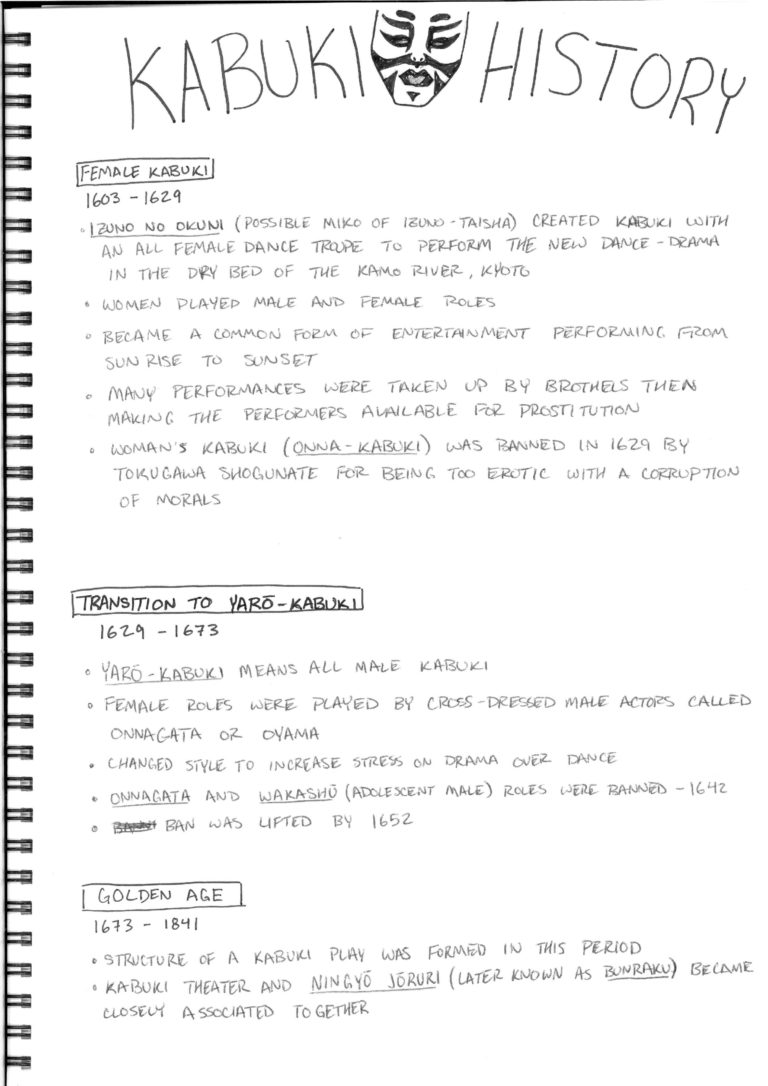 KABUKI HISTORY
FEMALE KABUKI
1603 - 1629
• IZUNO NO OKUNI (POSSIBLE MIKO OF IZUNO-TAISHA) CREATED KABUKI WITH
AN ALL FEMALE DANCE TROUPE TO PERFORM THE NEW DANCE-DRAMA
IN THE DRY BED OF THE KAMO RIVER, KYOTO
• WOMEN PLAYED MALE AND FEMALE ROLES
• BECAME A COMMON FORM OF ENTERTAINMENT PERFORMING FROM
SUN RISE TO SUNSET
• MANY PERFORMANCES WERE TAKEN UP BY BROTHELS THEN
MAKING THE PERFORMERS AVAILABLE FOR PROSTITUTION
• WOMAN'S KABUKI (ONNA-KABUKI) WAS BANNED IN 1629 BY
TOKUGAWA SHOGUNATE FOR BEING TOO EROTIC WITH A CORRUPTION
OF MORALS
TRANSITION TO YARŌ-KABUKI
1629 - 1673
• YARŌ-KABUKI MEANS ALL MALE KABUKI
• FEMALE ROLES WERE PLAYED BY CROSS-DRESSED MALE ACTORS CALLED
ONNAGATA OR OYAMA
• CHANGED STYLE TO INCREASE STRESS ON DRAMA OVER DANCE
• ONNAGATA AND WAKASHŪ (ADOLESCENT MALE) ROLES WERE BANNED - 1642
• BAN WAS LIFTED BY 1652
GOLDEN AGE
1673 - 1841
• STRUCTURE OF A KABUKI PLAY WAS FORMED IN THIS PERIOD
• KABUKI THEATER AND NINGYŌ JŌRURI (LATER KNOWN AS BUNRAKU) BECAME
CLOSELY ASSOCIATED TOGETHER